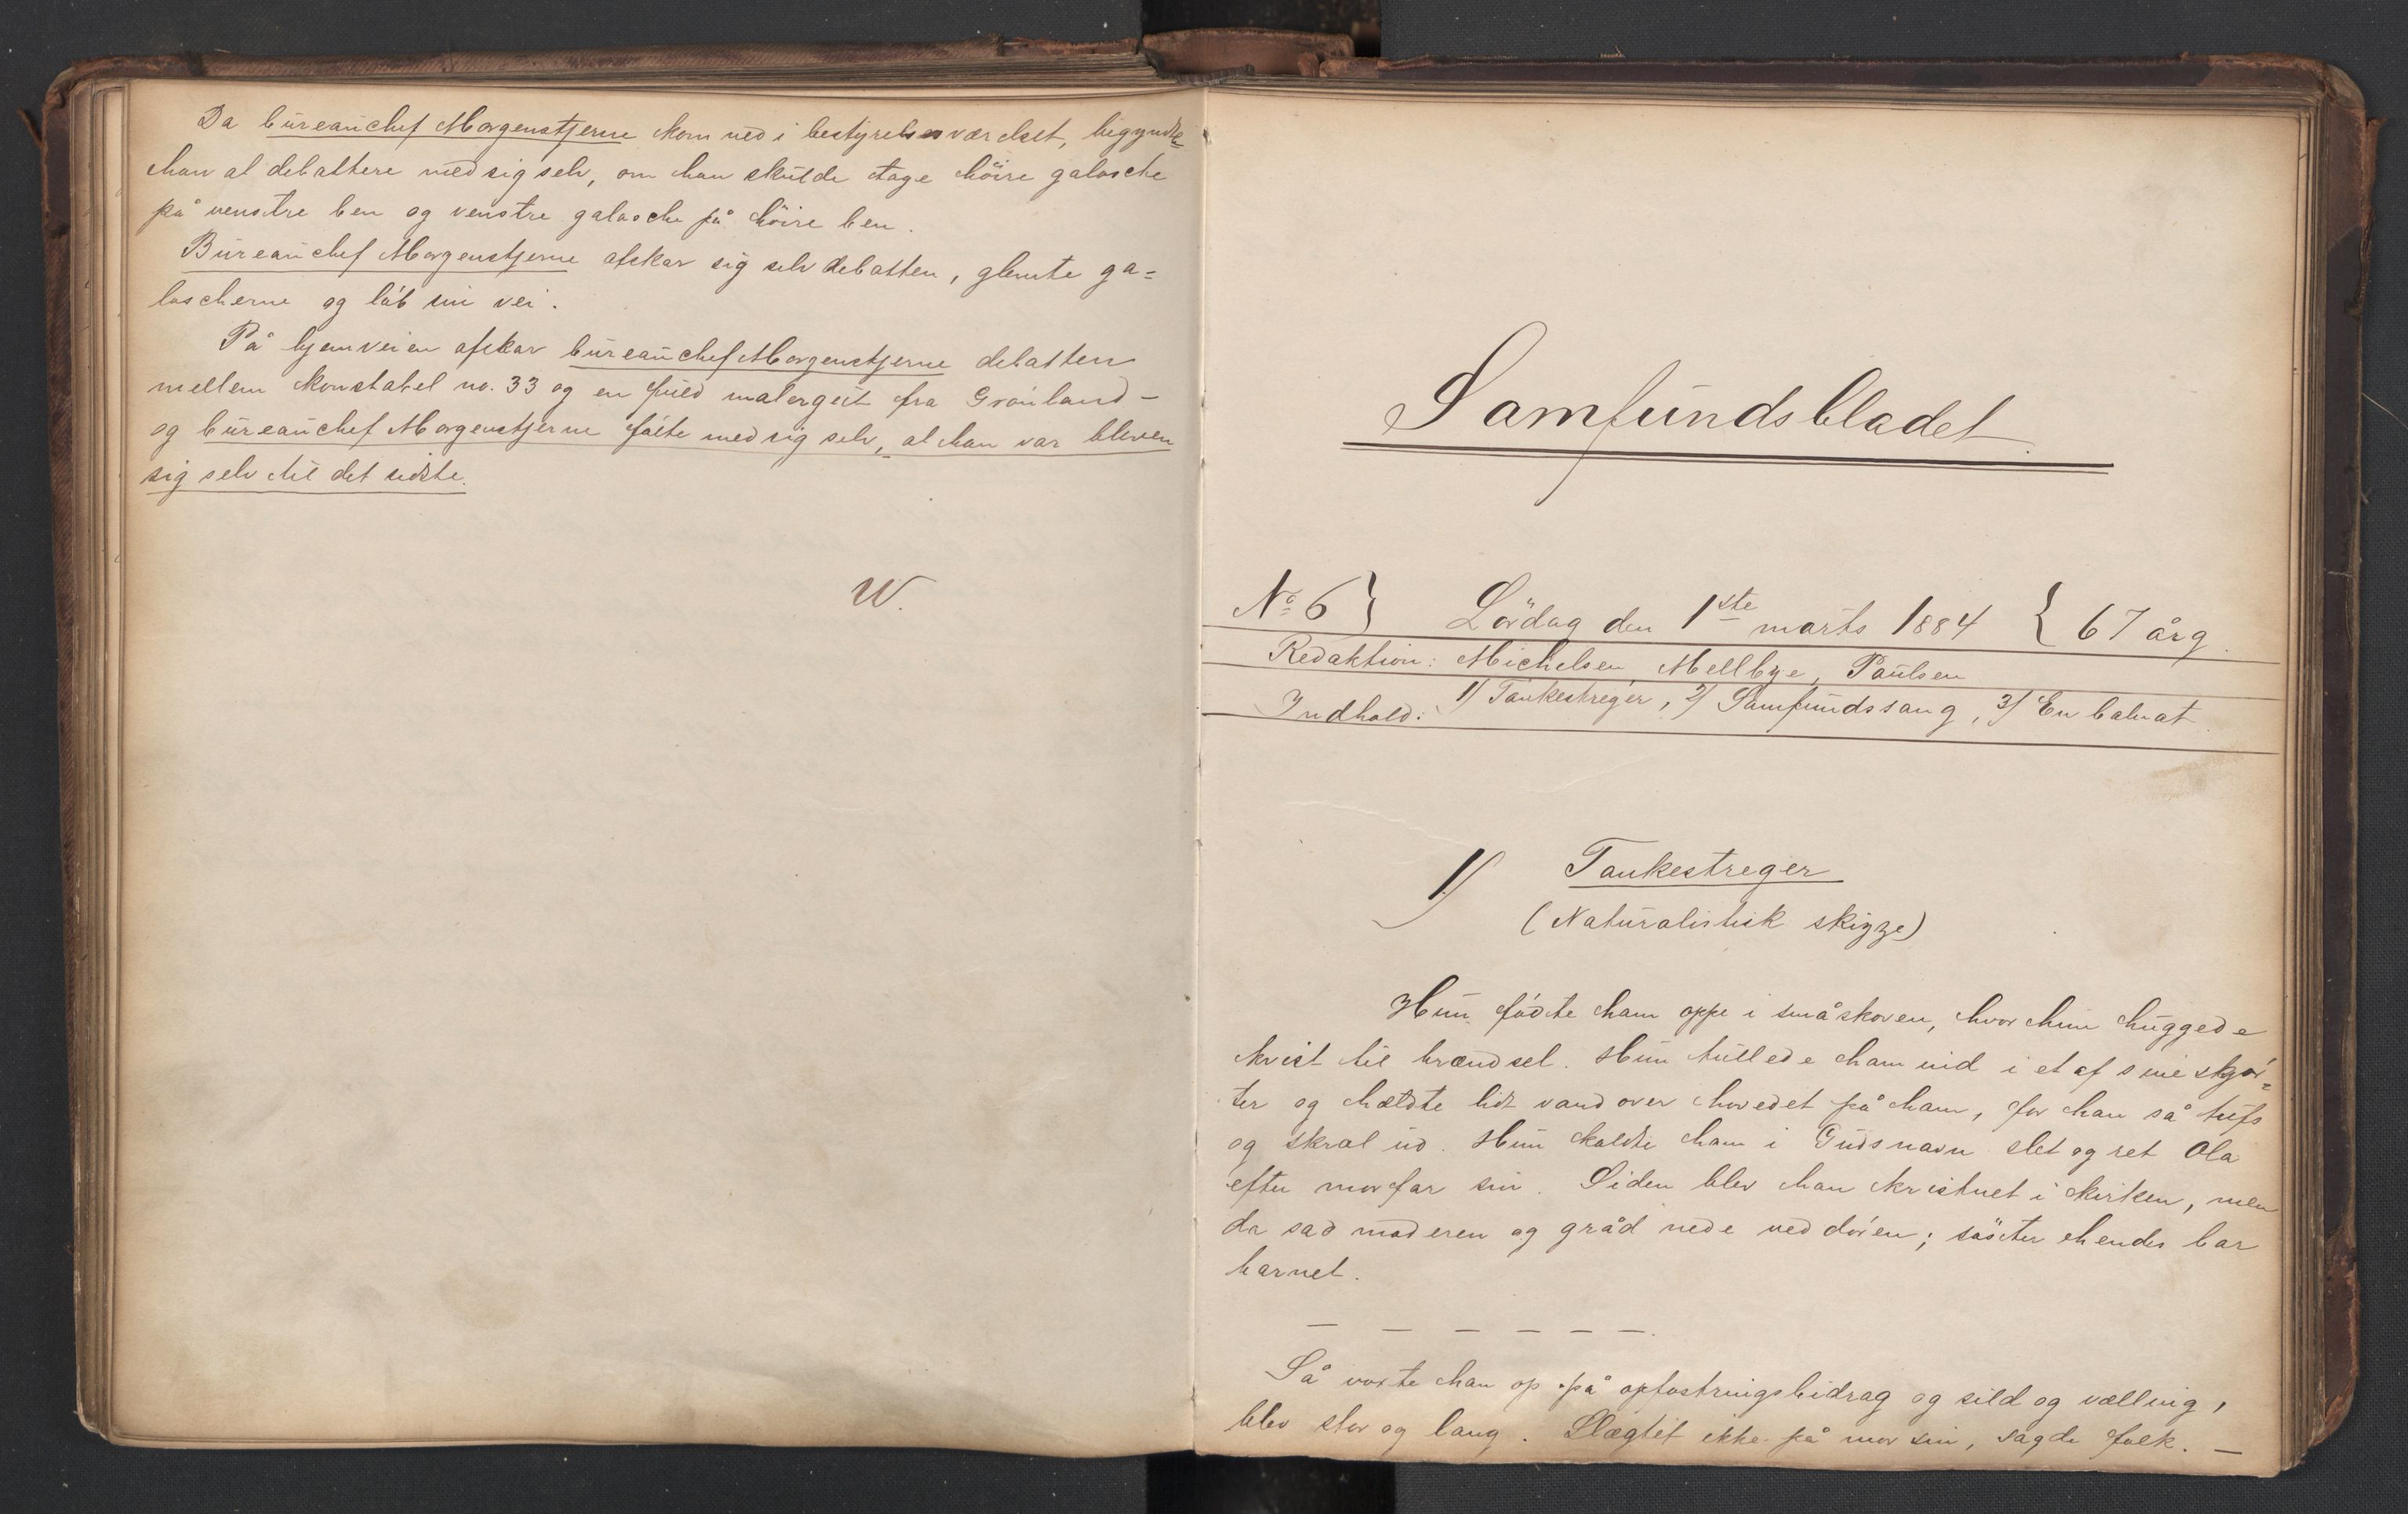 Da bureauchef Morgenstjerne kom ned i bestyrelsesværelset, begyndte
han at debattere med sig selv, om han skulde tage höire galosche
på venstre ben og venstre galosche på höire ben.
Bureauchef Morgenstjerne afskar sig selv debatten, glemte ga=
loscherne og löb sin vei.
På hjemveien afskar bureauchef Morgenstjerne debatten
mellem konstabel no. 33 og en fuld malergut fra Grönland –
og bureauchef Morgenstjerne følte med sig selv, at han var bleven
sig selv til det sidste.
W.
Samfundsbladet
No 6} Lördag den 1ste marts 1884 {67 årg.
Redaktion: Michelsen Mellbye, Paulsen
Indhold: 1) Tankestreger, 2) Samfundssang, 3) En balnat.
1) Tankestreger
(Naturalistisk skizze)
Hun födte ham oppe i småskoven, hvor hun huggede
kvist til brændsel. Hun tullede ham ind i et af sine skjör=
ter og hældte lidt vand over hovedet på ham, for han så tufs
og skral ud. Hun kaldte ham i Guds navn slet og ret Ola
efter morfar sin. Siden blev han kristnet i kirken, men
da sad moderen og gråd nede ved dören; söster hendes bar
barnet.
— — — — — —.
Så voxte han op på opfostringsbidrag og sild og vælling,
blev stor og lang. Slægtet ikke på mor sin, sagde folk. —